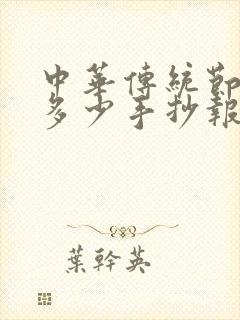 中華傳統節
多少手抄報
葉幹英